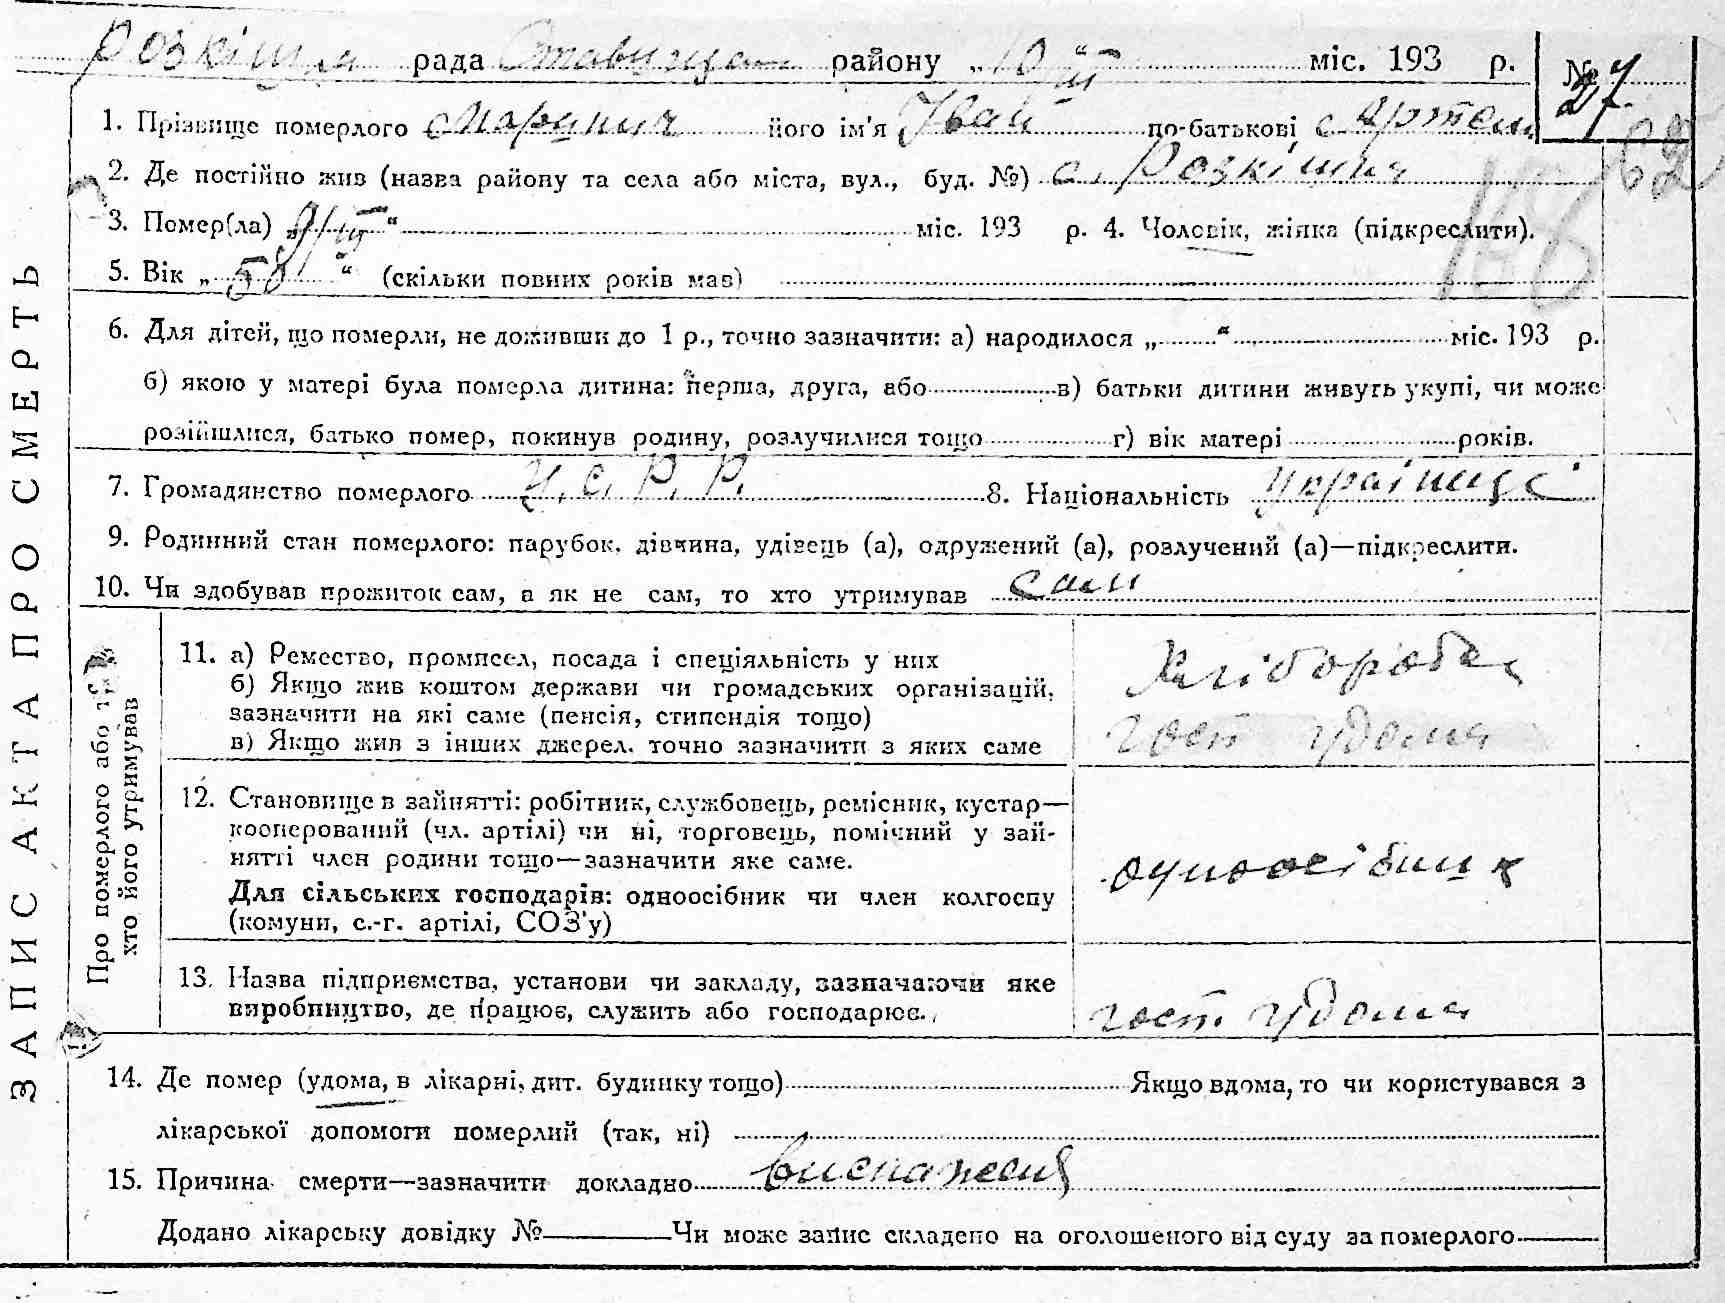 Розкішна рада Ставищан району „10/III“ міс. 193 р. № 27
1. Прізвище померлого його ім'я Іван по-батькові Артем
62
2. Де постійно жив (назва району та села або міста, вул., буд. №) с. Розкішна
188
3. Помер(ла) „9/III“ міс. 193 р. 4. Чоловік, жінка (підкреслити).
5. Вік „50“ (скільки повних років мав)
6. Для дітей, що померли, не доживши до 1 р., точно зазначити: а) народилося „ “ міс. 193 р.
б) якою у матері була померла дитина: перша, друга, або в) батьки дитини живуть укупі, чи може
розійшлися, батько помер, покинув родину, розлучилися тощо г) вік матері років.
7. Громадянство померлого У.С.Р.Р. 8. Національність
9. Родинний стан померлого: парубок, дівчина, удівець (а), одружений (а), розлучений (а)—підкреслити.
10. Чи здобував прожиток сам, а як не сам, то хто утримував сам
11. а) Ремество, промисел, посада і спеціяльність у них
б) Якщо жив коштом держави чи громадських організацій,
зазначити на які саме (пенсія, стипендія тощо)
в) Якщо жив з інших джерел, точно зазначити з яких саме
Хлібороб
удома
12. Становище в зайнятті: робітник, службовець, ремісник, кустар—
кооперований (чл. артілі) чи ні, торговець, помічний у зай-
нятті член родини тощо—зазначити яке саме.
Для сільських господарів: одноосібник чи член колгоспу
(комуни, с.-г. артілі, СОЗ'у)
одноосібник
13. Назва підприємства, установи чи закладу, зазначаючи яке
виробництво, де працює, служить або господарює.
госп. удома
14. Де помер (удома, в лікарні, дит. будинку тощо) Якщо вдома, то чи користувався з
лікарської допомоги померлий (так, ні)
15. Причина смерти—зазначити докладно виснаження
Додано лікарську довідку № Чи може запис складено на оголошеного від суду за померлого
ЗАПИС АКТА ПРО СМЕРТЬ
Про померлого або
хто його утримував